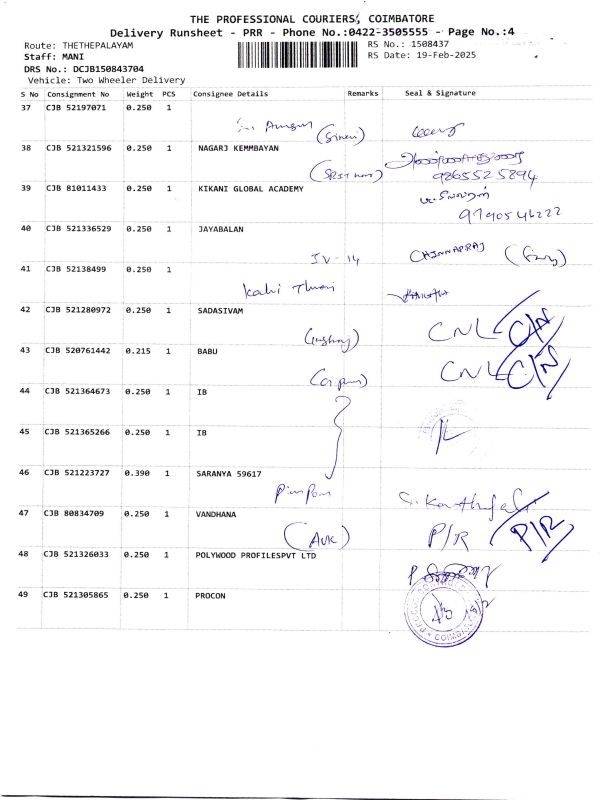 THE PROFESSIONAL COURIERS, COIMBATORE
Delivery Runsheet - PRR - Phone No.:0422-3505555 - Page No.:4
Route: THETHEPALAYAM
RS No.: 1508437
Staff: MANI
RS Date: 19-Feb-2025
DRS No.: DCJB150843704
Vehicle: Two Wheeler Delivery
S No Consignment No Weight PCS Consignee Details Remarks Seal & Signature
37 CJB 52197071 0.250 1
38 CJB 521321596 0.250 1 NAGARJ KEMMBAYAN
9865525894
39 CJB 81011433 0.250 1 KIKANI GLOBAL ACADEMY
9790546222
40 CJB 521336529 0.250 1 JAYABALAN
IV-14 CHINNAPRAJ
41 CJB 52138499 0.250 1
42 CJB 521280972 0.250 1 SADASIVAM
CNL C/N
43 CJB 520761442 0.215 1 BABU
CNL C/N
44 CJB 521364673 0.250 1 IB
45 CJB 521365266 0.250 1 IB
46 CJB 521223727 0.390 1 SARANYA 59617
47 CJB 80834709 0.250 1 VANDHANA
P/R P/R
48 CJB 521326033 0.250 1 POLYWOOD PROFILESPVT LTD
49 CJB 521305865 0.250 1 PROCON